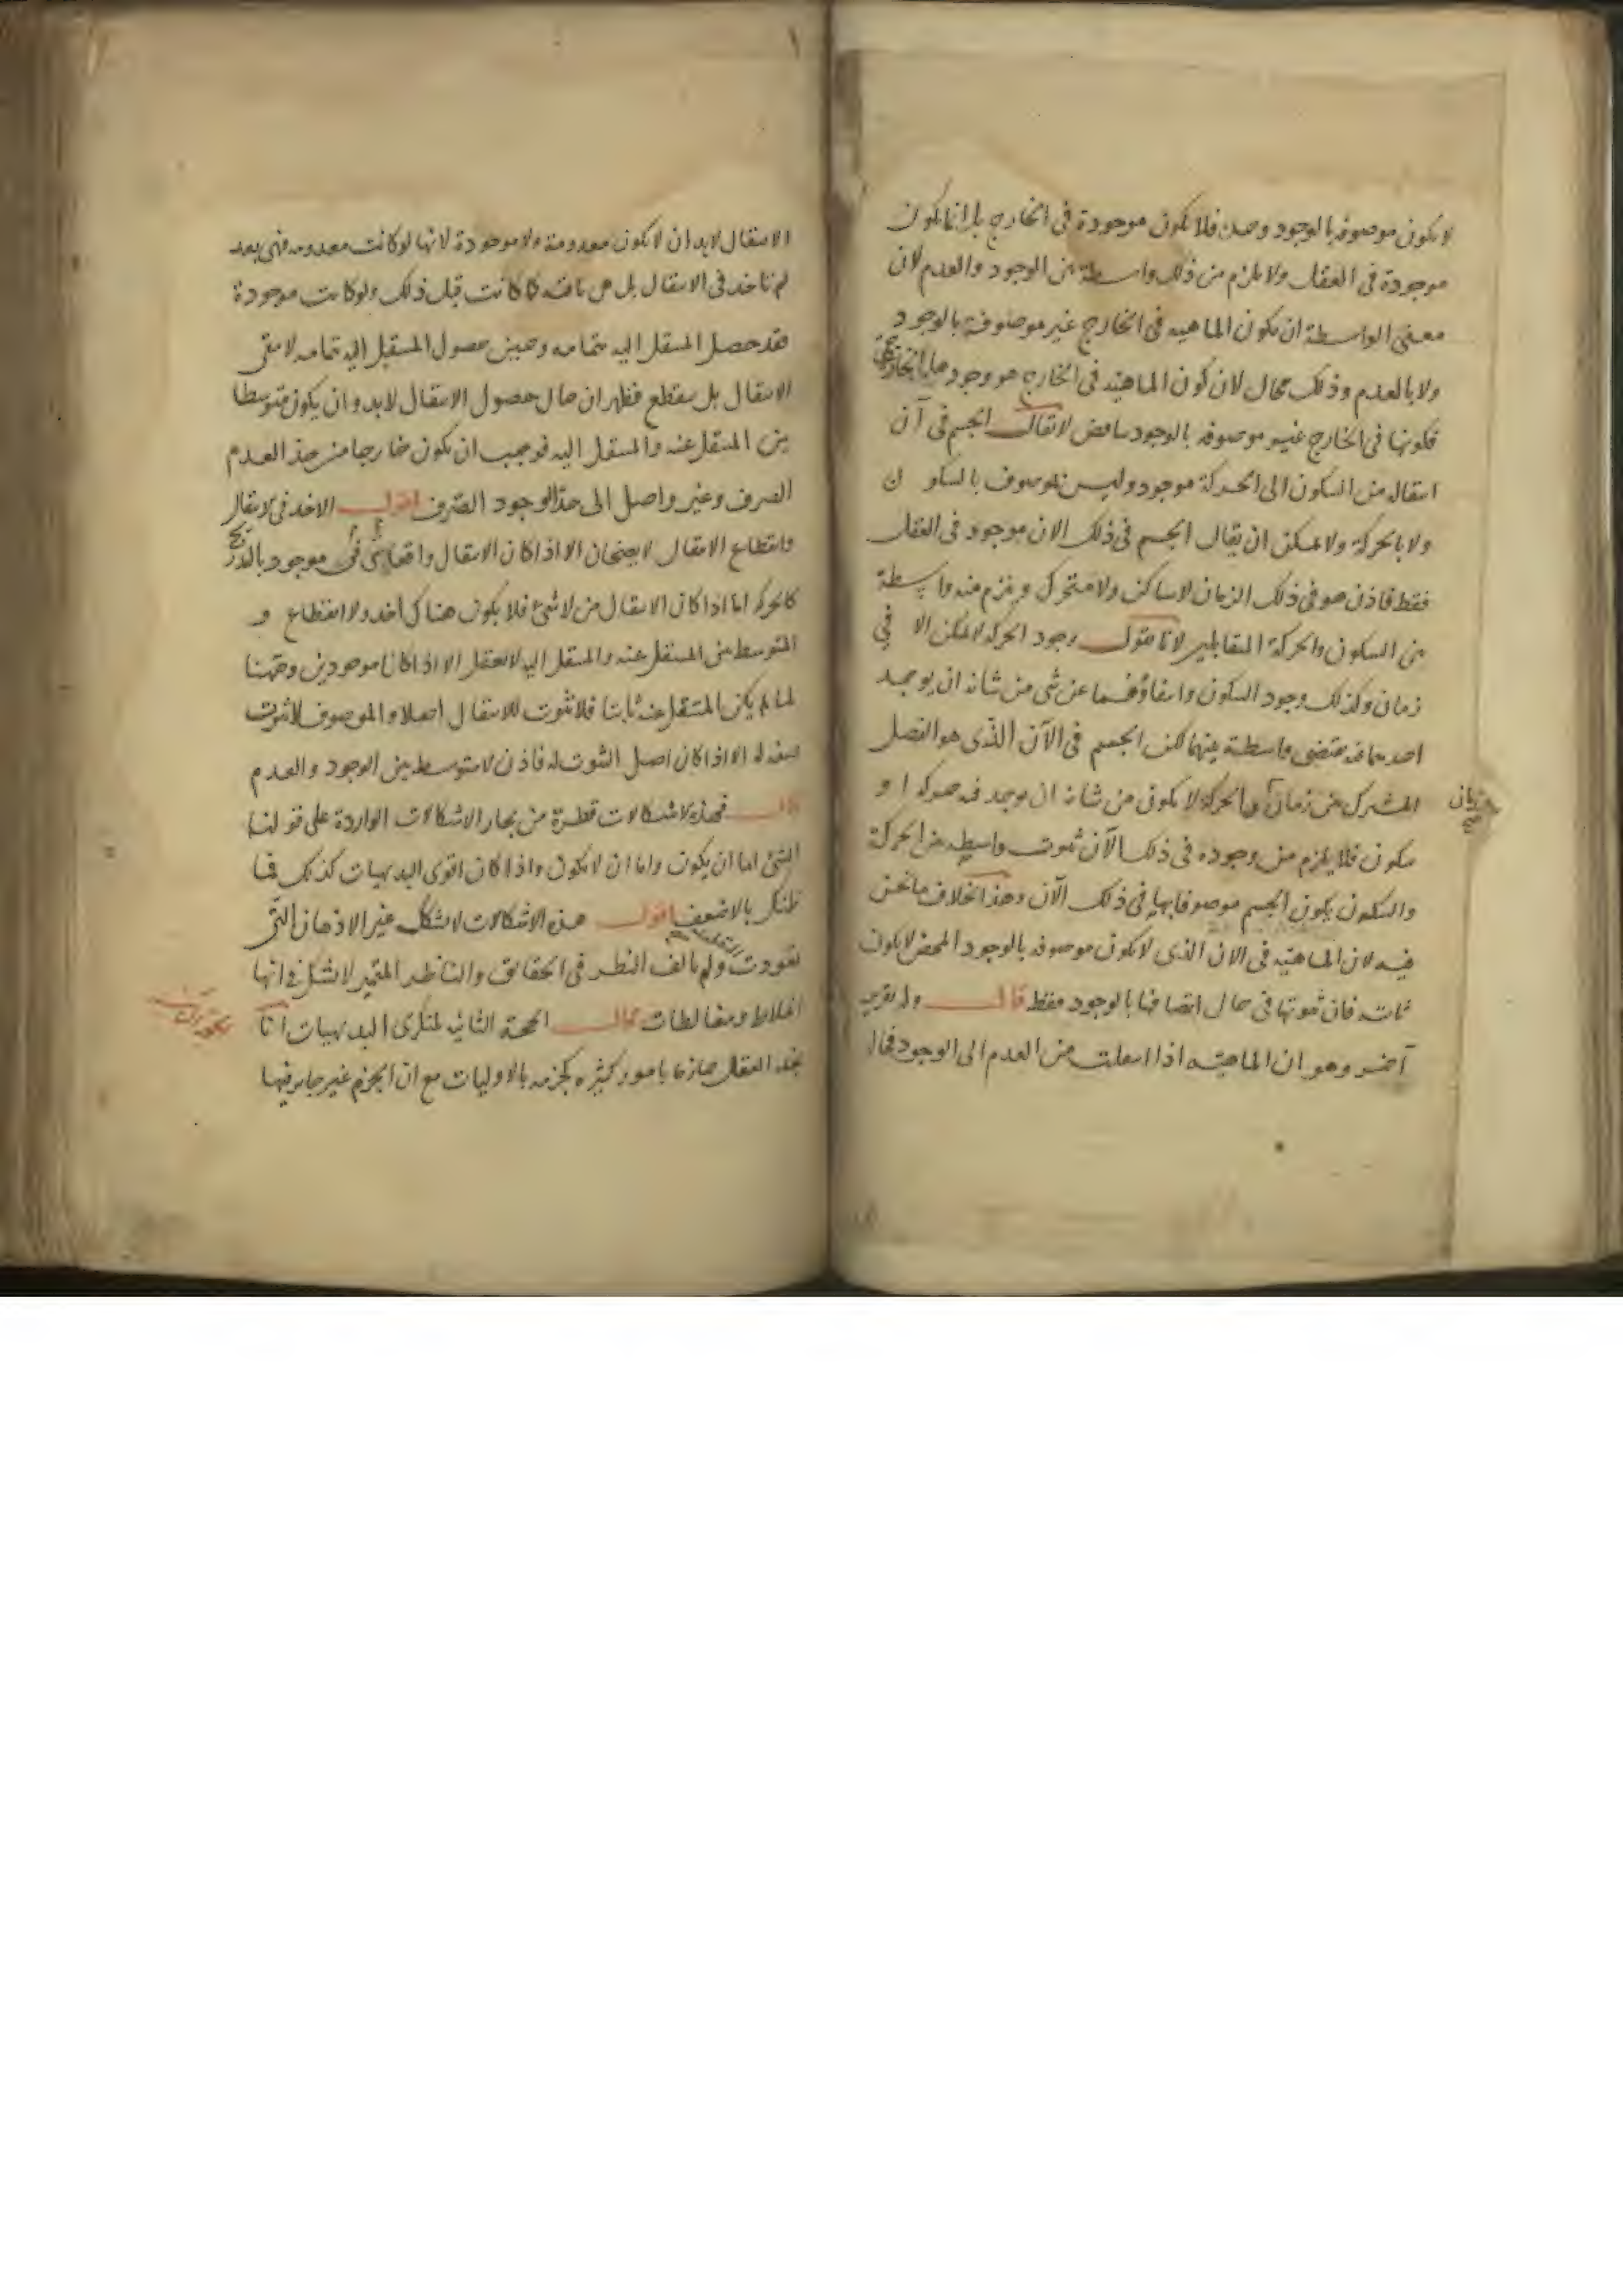 لا يكون موصوفة بالوجود وحده فلا يكون موجودة في الخارج بل انما يكون
موجودة في العقل ولا يلزم من ذلك واسطة بين الوجود والعدم لان
معنى الواسطة ان يكون الماهية في الخارج غير موصوفة بالوجود
ولا بالعدم وذلك محال لان كون الماهية في الخارج هو وجودها الخارجي
فكونها في الخارج غير موصوفة بالوجود تناقض لا يقال الجسم في آن
انتقاله من السكون الى الحركة موجود وليس بموصوف بالسكون
ولا بالحركة ولا يمكن ان يقال الجسم في ذلك الان موجود في العقل
فقط فاذن هو في ذلك الزمان لا ساكن ولا متحرك ويلزم منه واسطة
بين السكون والحركة المتقابلين لانا نقول وجود الحركة لا يمكن الا في
زمان وكذلك وجود السكون وانتفاؤهما عن شي من شانه ان يوجد
احدهما فيه يقتضي واسطة بينهما لكن الجسم في الآن الذي هو الفصل
المشترك بين زماني الحركة لا يكون من شانه ان يوجد فيه حركة او
زمان صح
سكون فلا يلزم من وجوده في ذلك الآن ثبوت واسطة بين الحركة
والسكون يكون الجسم موصوفا بها في ذلك الآن وهذا بخلاف ما نحن
فيه لان الماهية في الان الذي لا يكون موصوفة بالوجود المحض لا يكون
ثابتة فان ثبوتها في حال اتصافها بالوجود فقط قال وله تقرير
آخر وهو ان الماهية اذا انتقلت من العدم الى الوجود فحال
الانتقال لابد ان لا يكون معدومة ولا موجودة لانها لو كانت معدومة فهي بعد
لم تاخذ في الانتقال بل هي باقية كما كانت قبل ذلك ولو كانت موجودة
فقد حصل المنتقل اليه بتمامه وحين حصول المنتقل اليه بتمامه لا يبقى
الانتقال بل ينقطع فظهر ان حال حصول الانتقال لابد وان يكون متوسطا
بين المنتقل عنه والمنتقل اليه فوجب ان يكون خارجا من حد العدم
الصرف وغير واصل الى حد الوجود الصرف اقول الاخذ في الانتقال
وانقطاع الانتقال لا يصحان الا اذا كان الانتقال واقعا في شيء موجود بالتدريج
كالحركة اما اذا كان الانتقال من لا شيء فلا يكون هناك اخذ ولا انقطاع و
المتوسط بين المنتقل عنه والمنتقل اليه لا يعقل الا اذا كانا موجودين وههنا
لما لم يكن المنتقل عنه ثابتا فلا ثبوت للانتقال اصلا والموصوف لا ثبوت
لصفة له الا اذا كان اصل الثبوت له فاذن لا متوسط بين الوجود والعدم
قال فهذه الاشكالات قطرة من بحار الاشكالات الواردة على قولنا
الشيء اما ان يكون واما ان لا يكون واذا كان اقوى البديهيات كذلك فما
ظنك بالاضعف اقول هذه الاشكالات لا تشكل غير الاذهان التي
تعودت التقليد ولم يالف النظر في الحقائق والناظر المتميز لا يشك في انها
اغلاط ومغالطات قال الحجة الثانية لمنكري البديهيات انا
نجد العقل جازما بامور كثيرة كجزمه بالاوليات مع ان الجزم غير جايز فيها